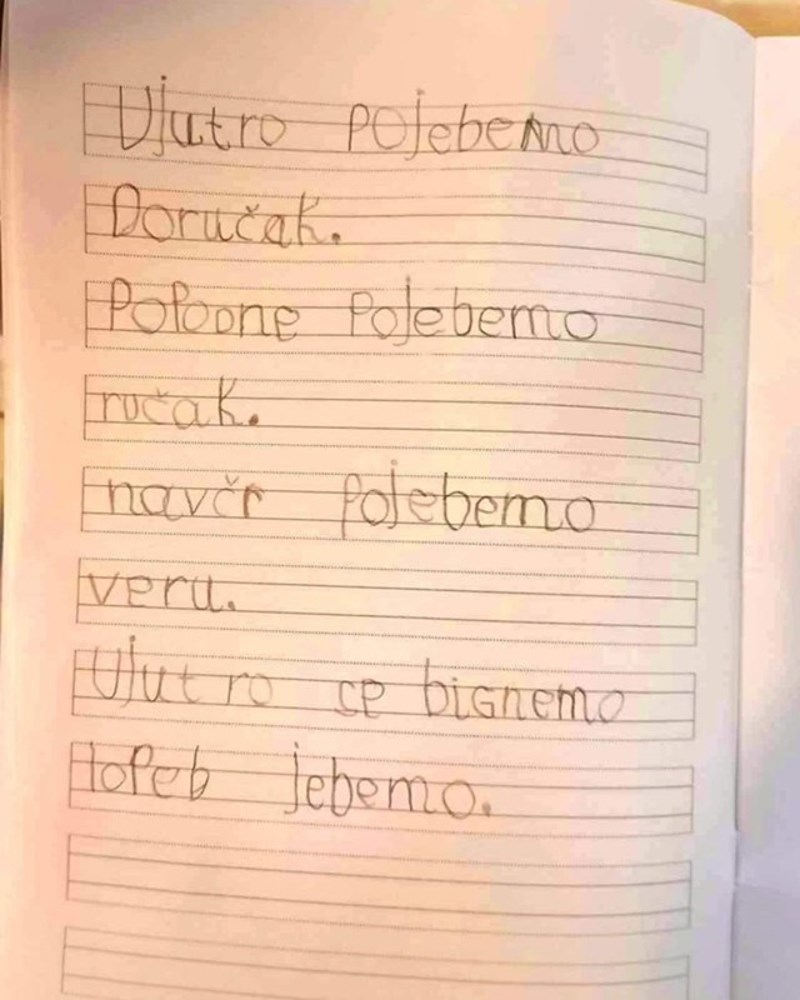 Ujutro pojebemo
Doručak.
Popodne Pojebemo
ručak.
navčr pojebemo
veru.
Ujutro se bignemo
Iopeb jebemo.